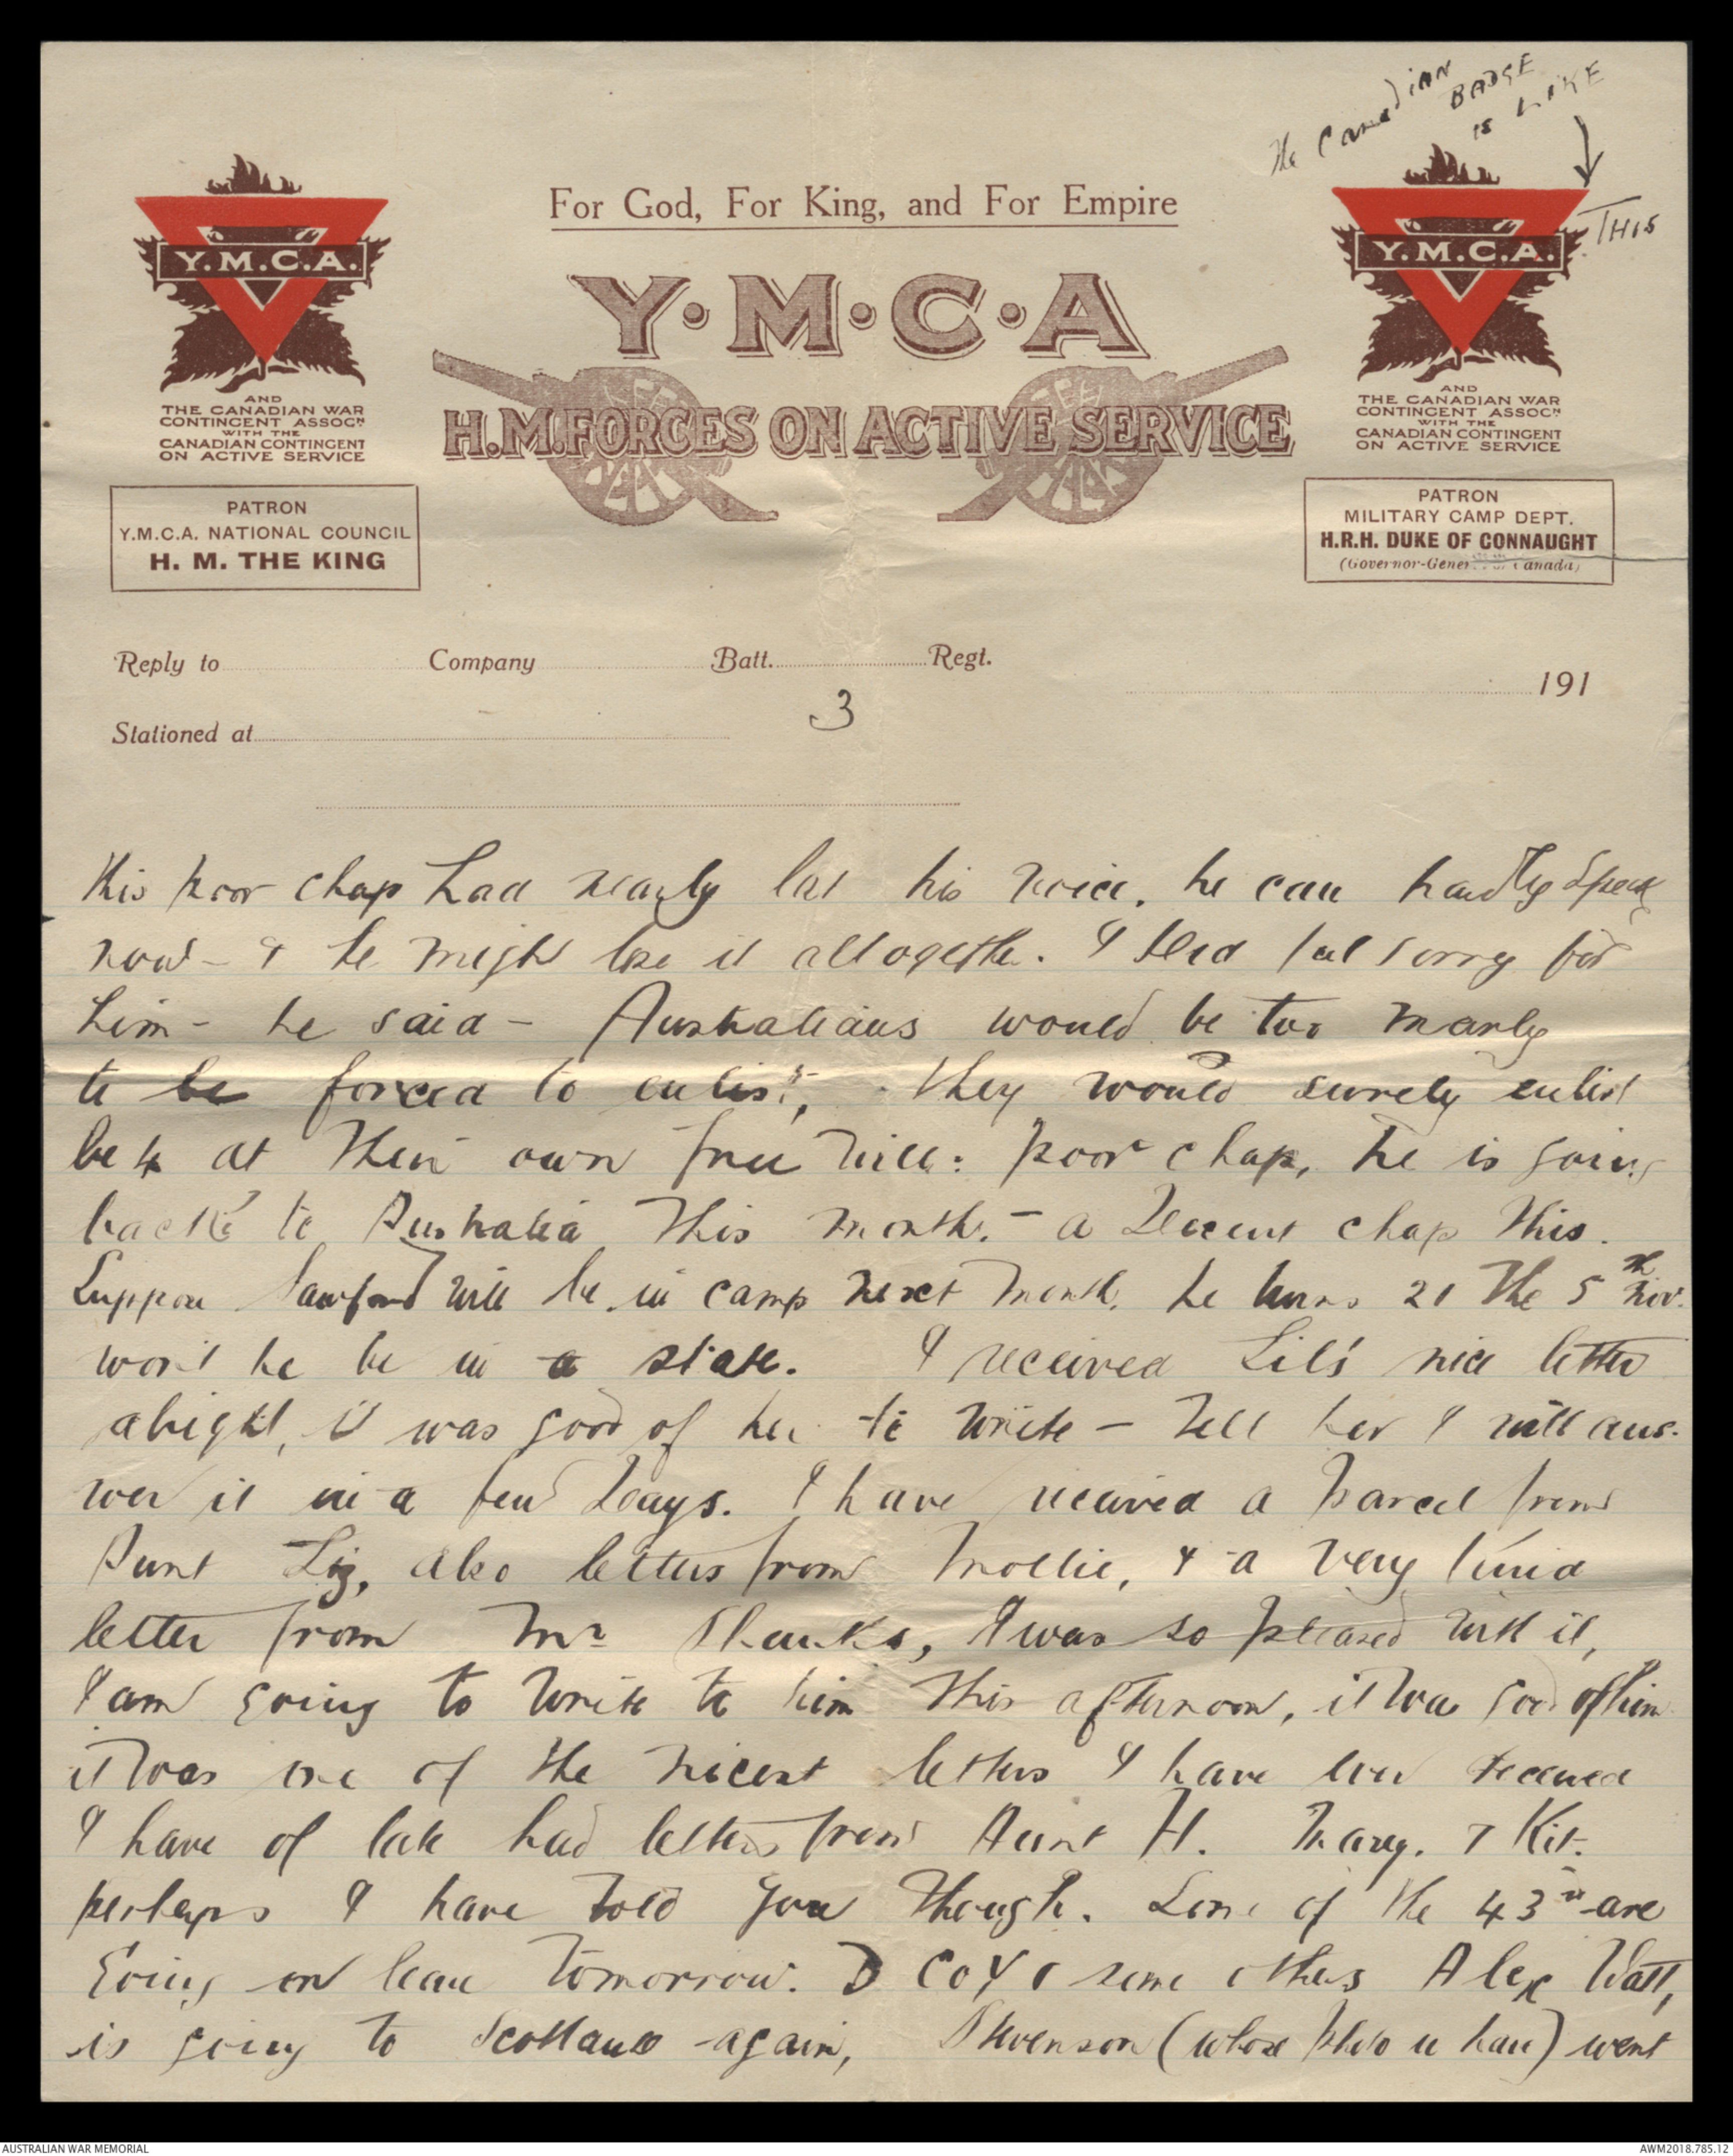 The Canadian
BADGE
is LIKE
THIS
For God, For King, and For Empire
Y.M.C.A.
Y.M.C.A.
Y·M·C·A
H.M. FORCES ON ACTIVE SERVICE
AND
THE CANADIAN WAR
CONTINGENT ASSOCN
WITH THE
CANADIAN CONTINGENT
ON ACTIVE SERVICE
AND
THE CANADIAN WAR
CONTINGENT ASSOCN
WITH THE
CANADIAN CONTINGENT
ON ACTIVE SERVICE
PATRON
Y.M.C.A. NATIONAL COUNCIL
H. M. THE KING
PATRON
MILITARY CAMP DEPT.
H.R.H. DUKE OF CONNAUGHT
(Governor-General of Canada)
Reply to Company Batt. Regt.
191
3
Stationed at
This poor chap had nearly lost his voice, he can hardly speak
now - & he might lose it altogether. I did feel sorry for
him - he said - Australians would be too manly
to be forced to enlist, they would surely enlist
be4 at their own free will: poor chap, he is going
back to Australia this month. - a decent chap this.
Suppose Lawford will be in camp next month. he turns 21 the 5th Nov.
won't he be in a state. I received Lil's nice letter
alright, it was good of her to write - Tell her I will ans-
wer it in a few days. I have received a parcel from
Aunt Liz, also letters from Mollie, & a very kind
letter from Mr Shanks, I was so pleased with it,
I am going to write to him this afternoon, it was good of him
it was one of the nicest letters I have ever received
I have of late had letters from Aunt H. Mary. & Kit.
perhaps I have told you though. Some of the 43rd are
Going on leave tomorrow. D Coy & some others Alex Watt,
is going to Scotland again, Stevenson (whose photo u have) went
AUSTRALIAN WAR MEMORIAL
AWM2018.785.12